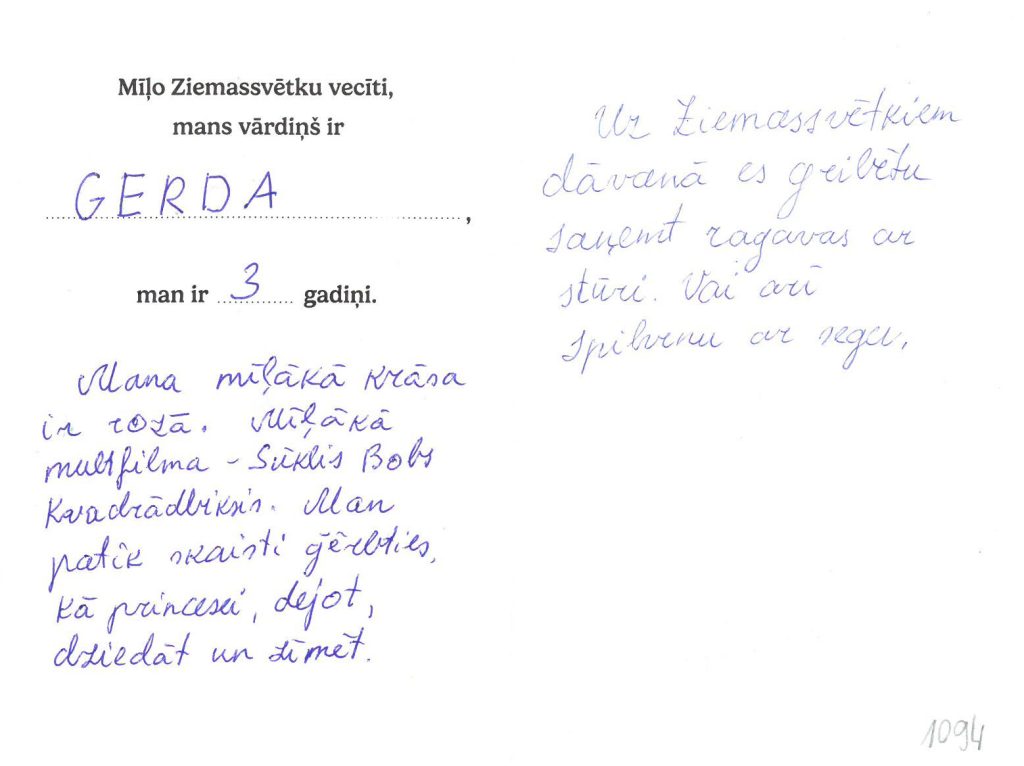 Mīļo Ziemassvētku vecīti,
mans vārdiņš ir
GERDA,
man ir 3 gadiņi.
Mana mīļākā krāsa
ir rozā. Mīļākā
multfilma - Sūklis Bobs
Kvadrādbiksis. Man
patīk skaisti ģērbties,
kā princesei, dejot,
dziedāt un zīmēt.
Uz Ziemassvētkiem
dāvanā es gribētu
saņemt ragavas ar
stūri. Vai arī
spilvenu ar segu.
1094